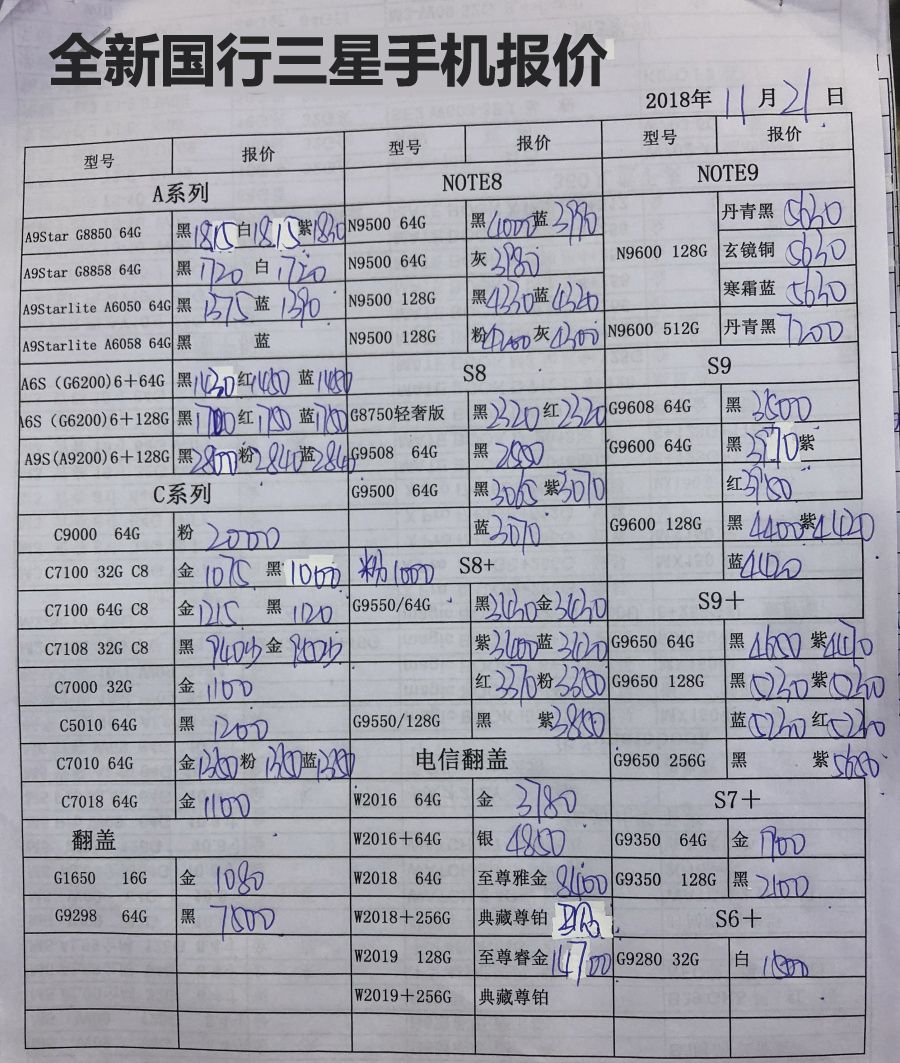 全新国行三星手机报价
2018年 11 月 21 日
型号 报价 型号 报价 型号 报价
A系列 NOTE8 NOTE9
A9Star G8850 64G 黑 1815 白 1815 紫 1830 N9500 64G 黑 4000 蓝 3990 丹青黑 5630
A9Star G8858 64G 黑 1720 白 1720 N9500 64G 灰 3980 N9600 128G 玄镜铜 5630
A9Starlite A6050 64G 黑 1375 蓝 1390 N9500 128G 黑 4330 蓝 4320 寒霜蓝 5630
A9Starlite A6058 64G 黑 蓝 N9500 128G 粉 4200 灰 4300 N9600 512G 丹青黑 7200
A6S (G6200)6+64G 黑 1430 红 1480 蓝 1480 S8 S9
A6S (G6200)6+128G 黑 红 1780 蓝 1780 G8750轻奢版 黑 2320 红 2320 G9608 64G 黑 3500
A9S(A9200)6+128G 黑 2800 粉 2840 蓝 2840 G9508 64G 黑 G9600 64G 黑 3770 紫
C系列 G9500 64G 黑 3065 紫 3070 红 3780
C9000 64G 粉 20000 蓝 3070 G9600 128G 黑 4400 紫 4420
C7100 32G C8 金 1075 黑 粉 1000 S8+ 蓝 4420
C7100 64G C8 金 1215 黑 1120 G9550/64G 黑 3430 金 3430 S9+
C7108 32G C8 黑 金 紫 3400 蓝 3420 G9650 64G 黑 4650 紫
C7000 32G 金 1100 红 3370 粉 3380 G9650 128G 黑 5230 紫 5230
C5010 64G 黑 1200 G9550/128G 黑 紫 3850 蓝 5230 红 5230
C7010 64G 金 1380 粉 1380 蓝 1380 电信翻盖 G9650 256G 黑 紫 5680
C7018 64G 金 1100 W2016 64G 金 3780 S7+
翻盖 W2016+64G 银 4850 G9350 64G 金 1900
G1650 16G 金 1080 W2018 64G 至尊雅金 8400 G9350 128G 黑 2100
G9298 64G 黑 7800 W2018+256G 典藏尊铂 S6+
W2019 128G 至尊睿金 14700 G9280 32G 白 1800
W2019+256G 典藏尊铂